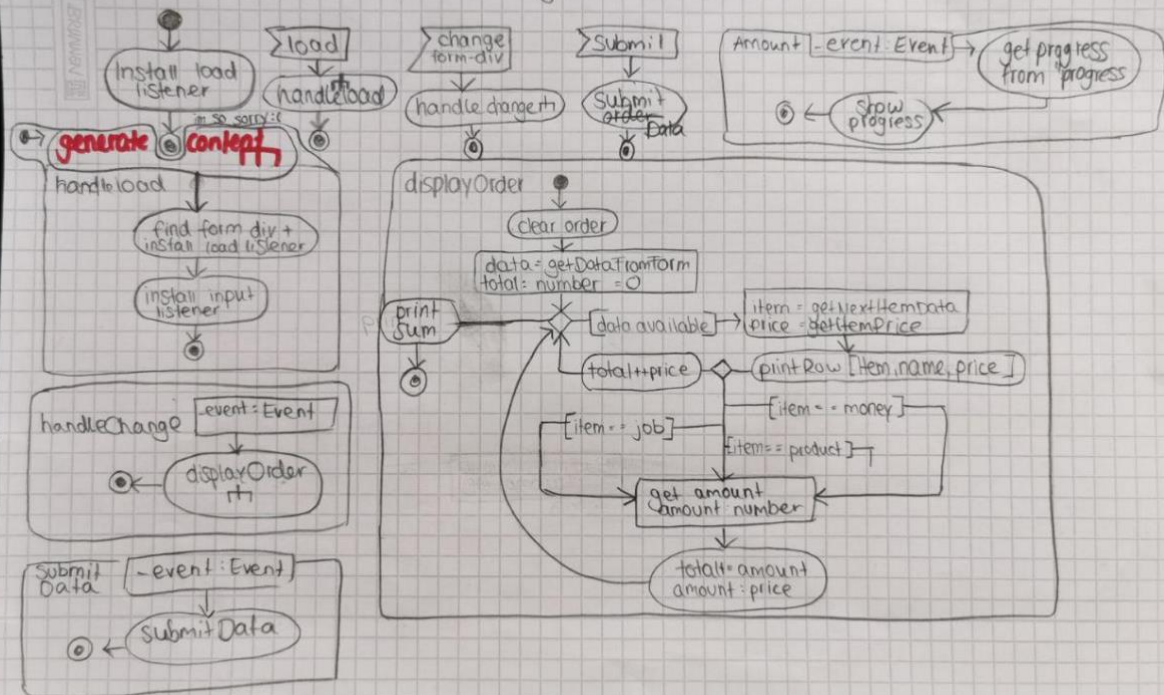 Install load
listener
load
handleload
change
form-div
handle change
Submit
Submit
order
Data
Amount
-event: Event
get progress
from progress
show
progress
im so sorry:(
generate
content
handleload
find form div +
install load listener
install input
listener
handleChange
-event: Event
displayOrder
submit
Data
-event: Event
submitData
displayOrder
clear order
data = getDataFromForm
total: number = 0
print
sum
[data available]
item = getNextItemData
price = getItemPrice
total++price
printRow [Item, name, price]
[item == money]
[item == job]
[item == product]
get amount
amount: number
total+= amount
amount: price